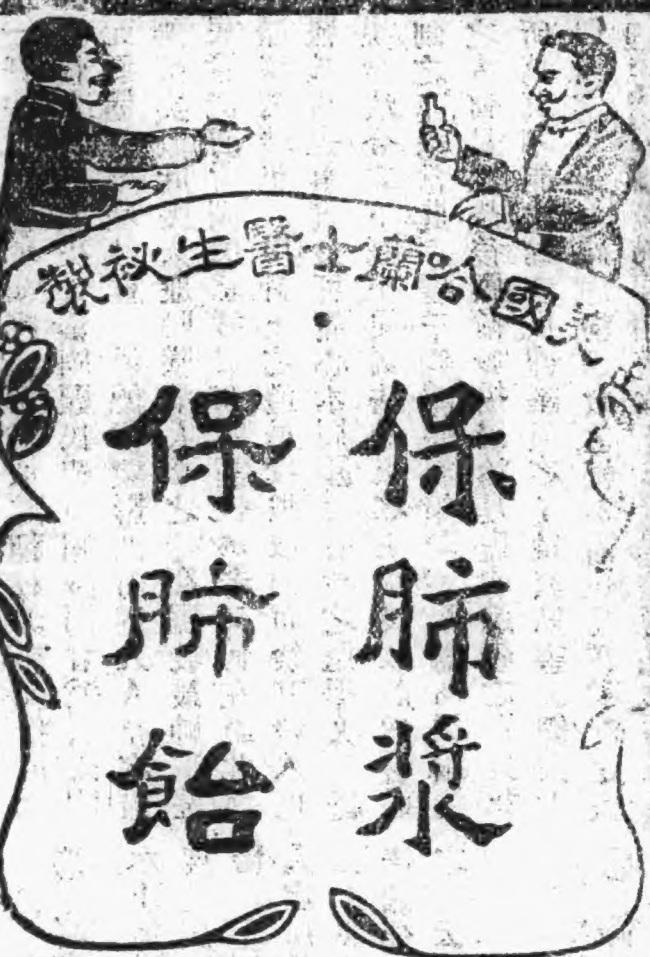 國哈蘭士醫生祕製
保肺漿
保肺飴